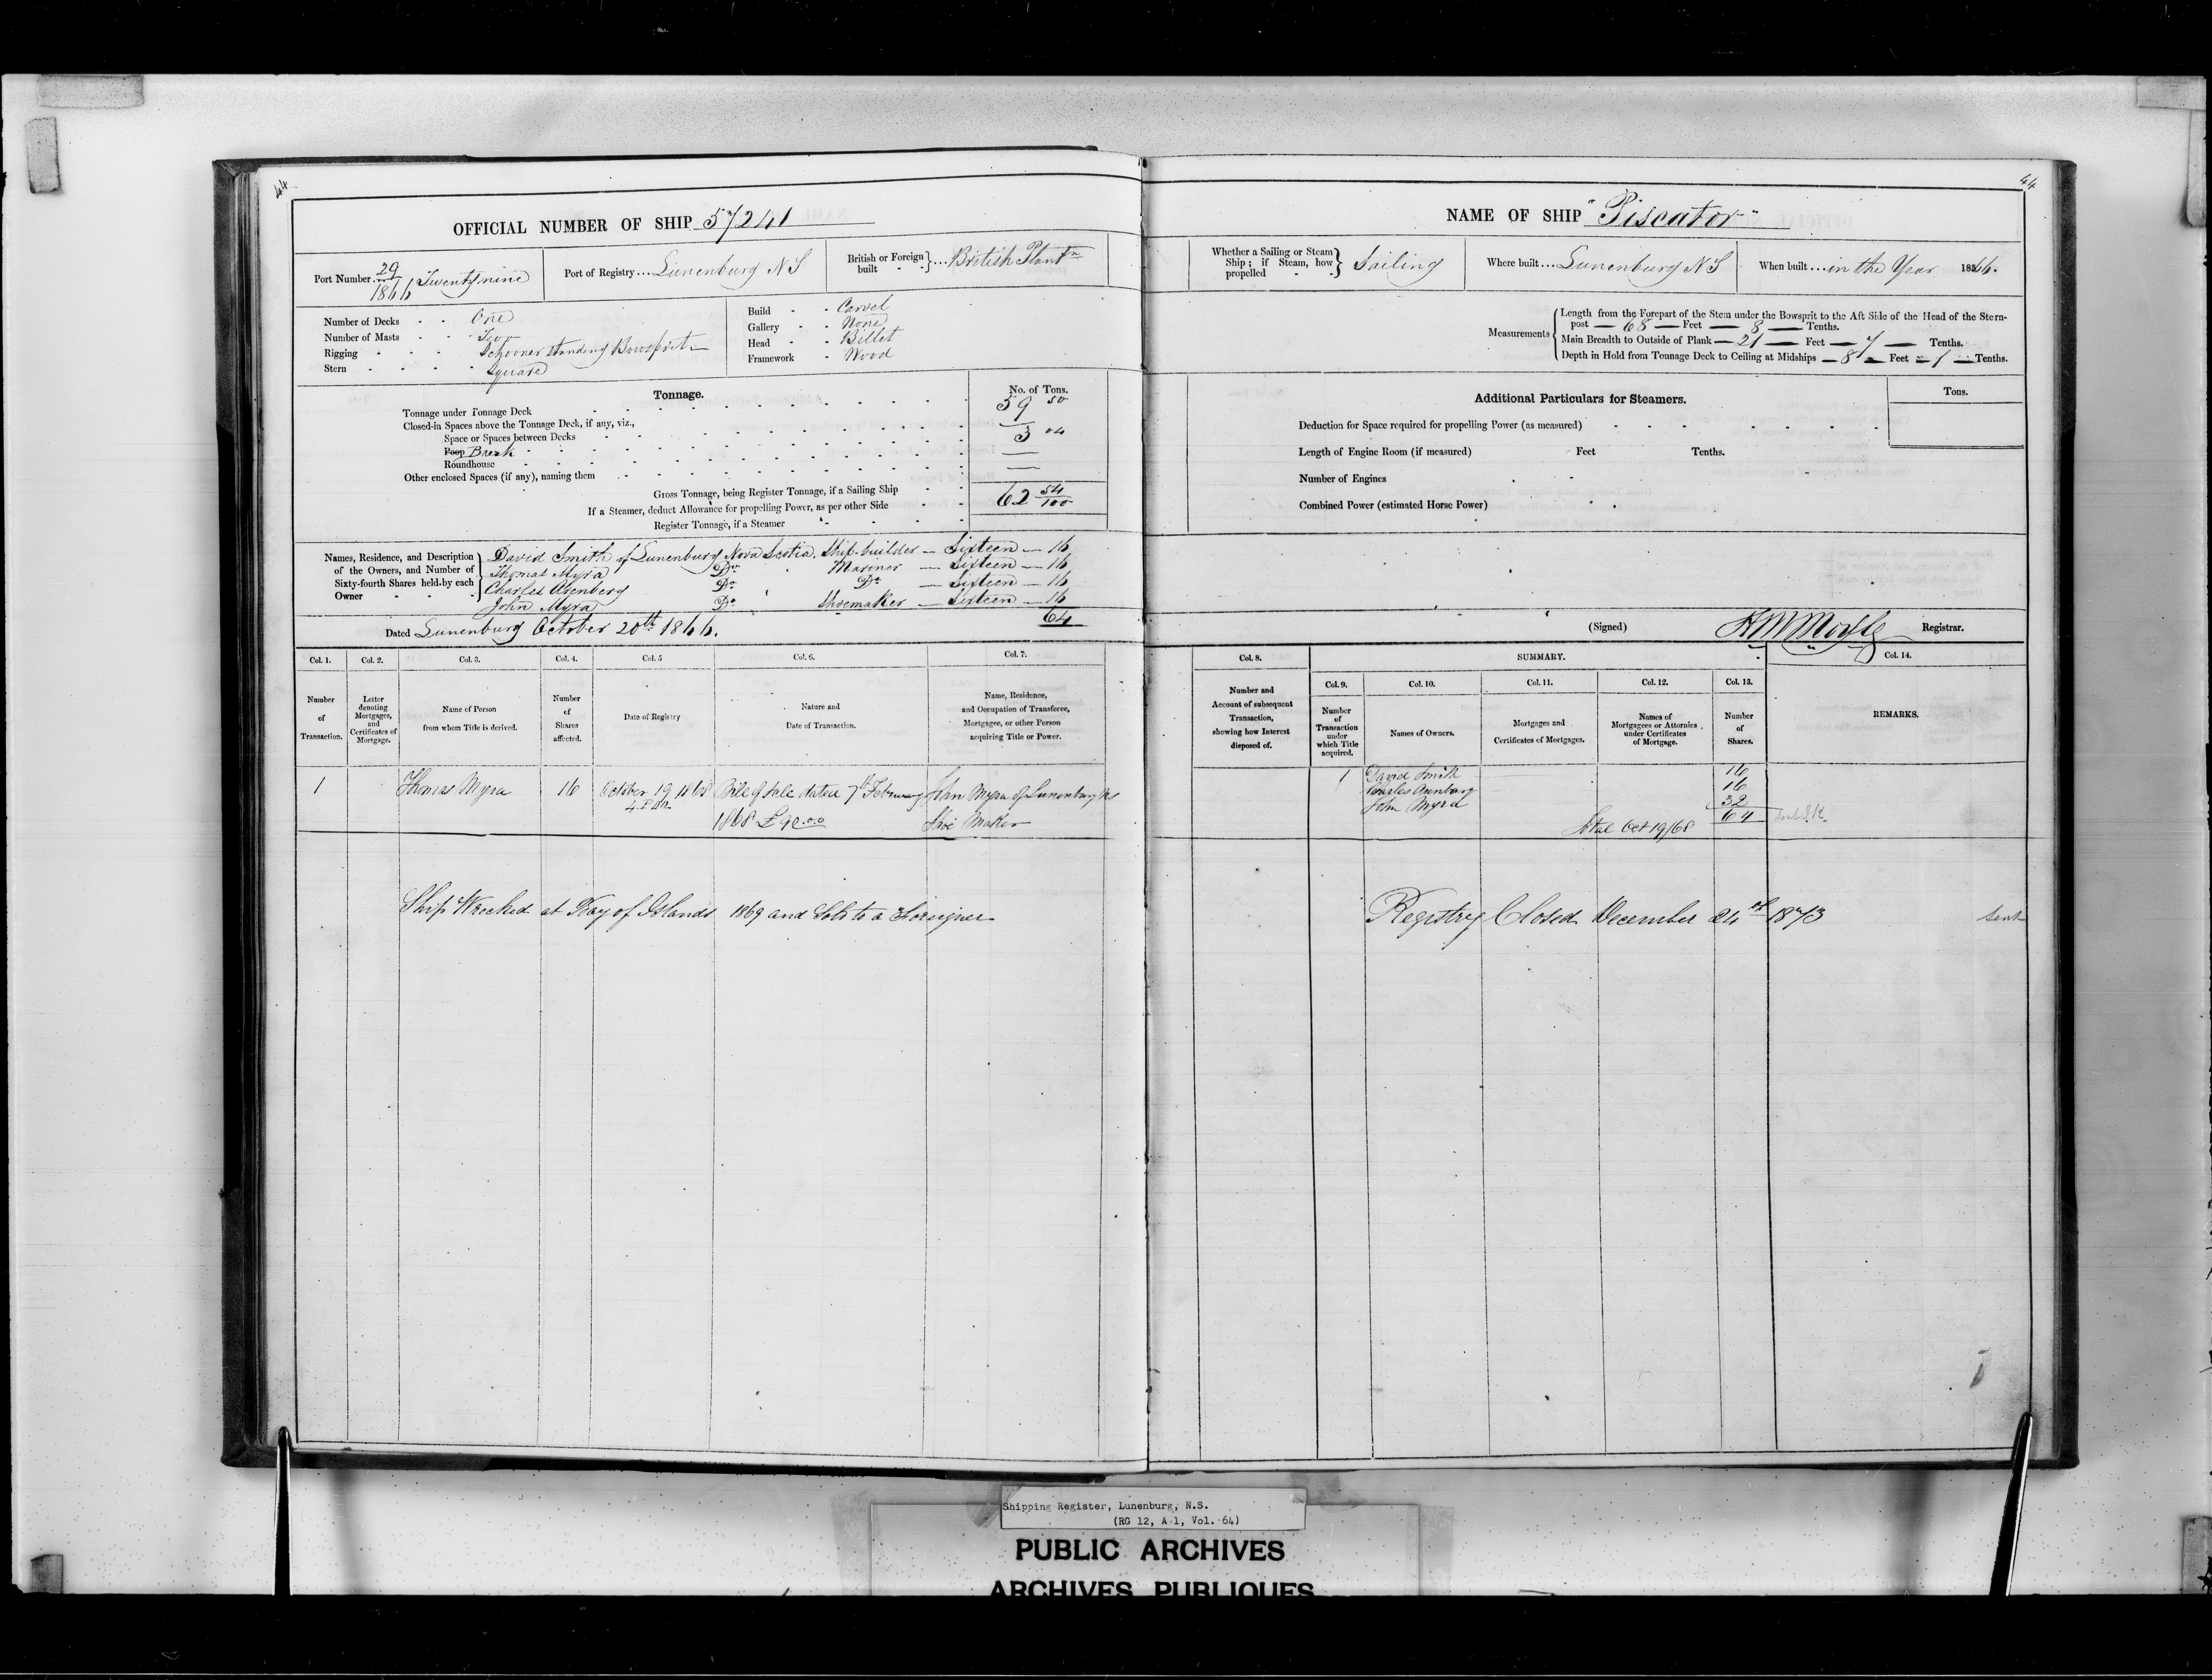 44
OFFICIAL NUMBER OF SHIP 57241
Port Number 29/1866 Twenty nine
Port of Registry... Lunenburg N S
British or Foreign built } ... British Plantn
Number of Decks - - One
Number of Masts - - Two
Rigging - - - Schooner standing Bowsprit
Stern - - - - Square
Build - - Carvel
Gallery - - None
Head - - Billet
Framework - Wood
Tonnage.
No. of Tons.
Tonnage under Tonnage Deck 59 50
Closed-in Spaces above the Tonnage Deck, if any, viz.,
Space or Spaces between Decks —
Poop Break 3 04
Roundhouse —
Other enclosed Spaces (if any), naming them —
Gross Tonnage, being Register Tonnage, if a Sailing Ship 62 54/100
If a Steamer, deduct Allowance for propelling Power, as per other Side
Register Tonnage, if a Steamer
Names, Residence, and Description of the Owners, and Number of Sixty-fourth Shares held by each Owner
David Smith of Lunenburg Nova Scotia, Ship-builder — Sixteen — 16
Thomas Myra Do Mariner — Sixteen — 16
Charles Do Do — Sixteen — 16
John Myra Do Shoemaker — Sixteen — 16
64
Dated Lunenburg October 20th 1866.
Col. 1. Col. 2. Col. 3. Col. 4. Col. 5 Col. 6. Col. 7.
Number of Transaction.
Letter denoting Mortgages, and Certificates of Mortgage.
Name of Person from whom Title is derived.
Number of Shares affected.
Date of Registry
Nature and Date of Transaction.
Name, Residence, and Occupation of Transferee, Mortgagee, or other Person acquiring Title or Power.
1 Thomas Myra 16 October 19 1868 4 P.M. Bill of Sale dated 7th February 1868 £90.0.0 John Myra of Lunenburg NS Shoe Maker
Ship Wrecked at Bay of Islands 1869 and Sold to a Foreigner
44
NAME OF SHIP "Piscator"
Whether a Sailing or Steam Ship; if Steam, how propelled } Sailing
Where built... Lunenburg N S
When built... in the Year 1866.
Measurements
Length from the Forepart of the Stem under the Bowsprit to the Aft Side of the Head of the Stern-
post — 68 — Feet — 8 — Tenths.
Main Breadth to Outside of Plank — 21 — Feet — 7 — Tenths.
Depth in Hold from Tonnage Deck to Ceiling at Midships — 8 — Feet — 1 — Tenths.
Additional Particulars for Steamers.
Tons.
Deduction for Space required for propelling Power (as measured)
Length of Engine Room (if measured) Feet Tenths.
Number of Engines
Combined Power (estimated Horse Power)
(Signed) Registrar.
Col. 8. SUMMARY. Col. 14.
Col. 9. Col. 10. Col. 11. Col. 12. Col. 13.
Number and Account of subsequent Transaction, showing how Interest disposed of.
Number of Transaction under which Title acquired.
Names of Owners.
Mortgages and Certificates of Mortgages.
Names of Mortgagees or Attornies under Certificates of Mortgage.
Number of Shares.
REMARKS.
1 David Smith 16
Charles 16
John Myra 32
Total Oct 19/68 64
Registry Closed December 24th 1873 Sent
Shipping Register, Lunenburg, N.S.
(RG 12, A 1, Vol. 64)
PUBLIC ARCHIVES
ARCHIVES PUBLIQUES